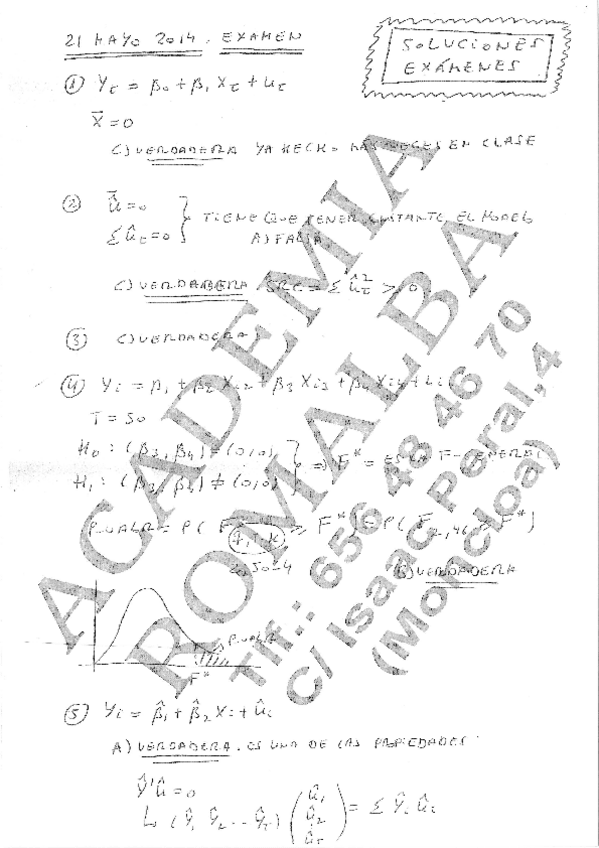 21 MAYO 2014. EXAMEN
SOLUCIONES
EXÁMENES
① Yt = β0 + β1 Xt + ut
X̄ = 0
C) VERDADERA YA HECHO MÁS VECES EN CLASE
② û̄ = 0
Σ ût = 0
TIENE QUE TENER CONSTANTE EL MODELO
A) FALSA
C) VERDADERA SRC = Σ ût² > 0
③ C) VERDADERA
④ Yi = β1 + β2 Xi2 + β3 Xi3 + β4 Xi4 + ui
T = 50
H0: (β3, β4) = (0,0)
H1: (β3, β4) ≠ (0,0)
⇒ F* = ES LA F-GENERAL
P.VALOR = P( F ≥ F*) = P( F2,46 ≥ F*)
2, 50-4
VERDADERA
P.VALOR
F*
⑤ Yi = β̂1 + β̂2 Xi + ûi
A) VERDADERA. ES UNA DE LAS PROPIEDADES:
Ŷ'û = 0
(Ŷ1 Ŷ2 ... ŶT) (û1 û2 ûT) = Σ Ŷi ûi
ACADEMIA
ROMALBA
Tlf.: 656 48 46 70
C/ Isaac Peral, 4
(Moncloa)